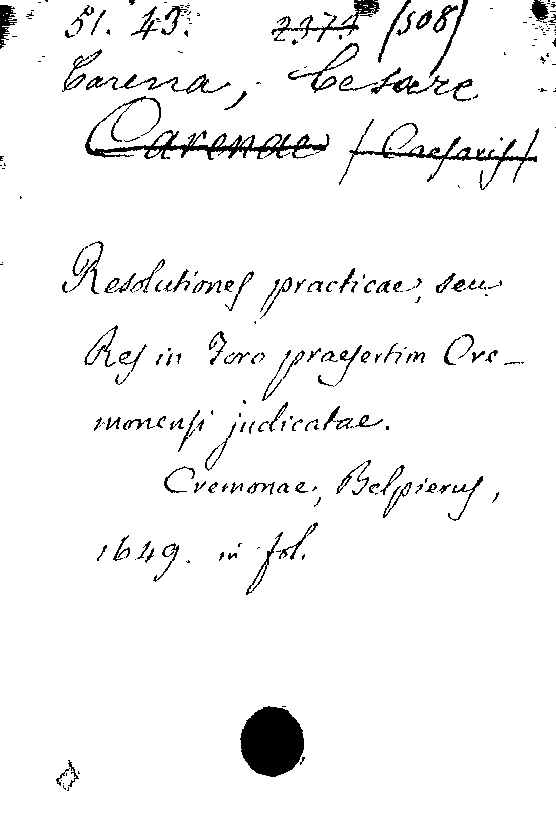 51. 43. 2373 (508)
Carena, Cesare
Carenae (Caesaris)
Resolutiones practicae, seu
Res in Foro praesertim Cre-
monensi judicatae.
Cremonae, Belpierus,
1649. in fol.